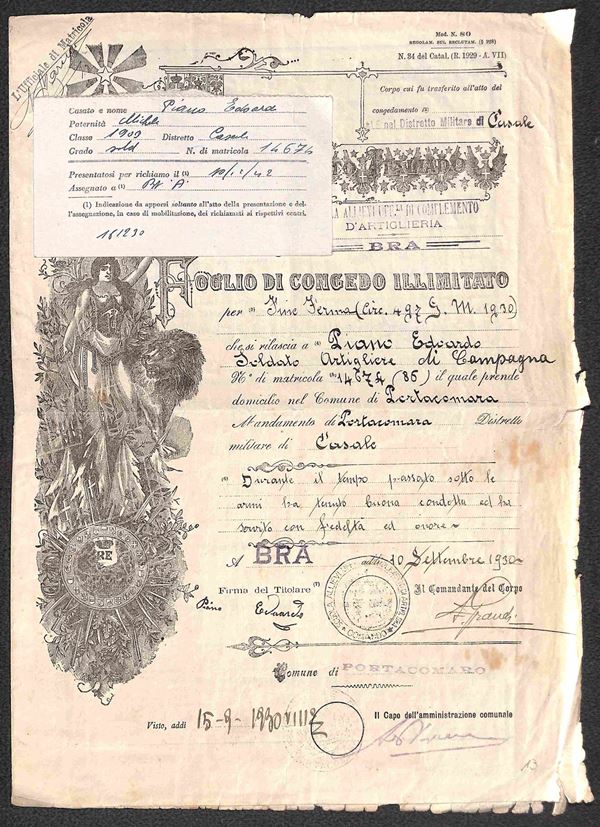 Mod. N. 80
REGOLAM. SUL RECLUTAM. (§ 928)
N. 34 del Catal. (R. 1929 - A. VII)
L'Ufficiale di Matricola
Corpo cui fu trasferito all'atto del
congedamento (2)
nel Distretto Militare di Casale
Casato e nome Piano Edoardo
Paternità Michele
Classe 1909 Distretto Casale
Grado sold N. di matricola 14674
Presentatosi per richiamo il (1)
Assegnato a (1)
(1) Indicazione da apporsi soltanto all'atto della presentazione e del-
l'assegnazione, in caso di mobilitazione, dei richiamati ai rispettivi centri.
181230
ALLIEVI UFF.LI DI COMPLEMENTO
D'ARTIGLIERIA
BRA
FOGLIO DI CONGEDO ILLIMITATO
per (3) Fine Ferma (Circ. 497 G. M. 1930)
che si rilascia a (4) Piano Edoardo
Soldato Artigliere di Campagna
N° di matricola (5) 14674 (85) il quale prende
domicilio nel Comune di Portacomara
Mandamento di Portacomara Distretto
militare di Casale
(6) Durante il tempo passato sotto le
armi ha tenuto buona condotta ed ha
servito con fedeltà ed onore
A BRA addì 10 Settembre 1930
Firma del Titolare (7)
Il Comandante del Corpo
Pino Eduardo
RE
COMANDO
Comune di PORTACOMARO
Visto, addì 15-9-1930 VIII
Il Capo dell'amministrazione comunale
13